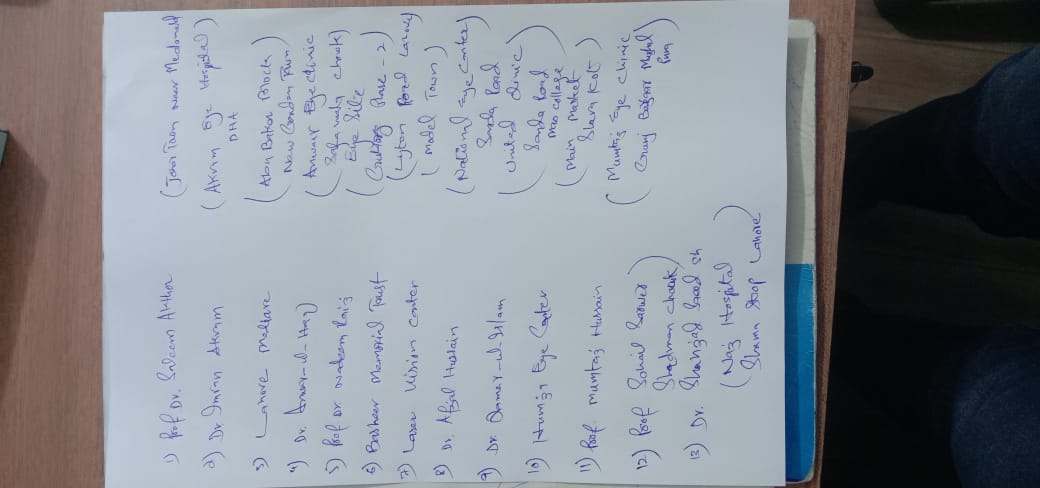 1) Prof Dr. Saleem Akhter (Johar Town Near Mcdonald
2) Dr Imran Akram (Akram Eye Hospital)
DHA
3) Lahore Medicare (Abu Baker Block
New Garden Town)
4) Dr. Anwar-ul-Haq (Anwar Eye clinic
Safa wala chowk)
5) Prof Dr Nadeem Riaz (Eye Site
Gulberg Phase-2)
6) Basheer Memorial Trust (Lyton Road Lahore)
7) Laser Vision center (Model Town)
8) Dr. Afzal Hussain (National Eye Center)
Sanda Road
9) Dr Qamar-ul-Islam (United clinic
Sanda Road
Mao college)
10) Humza Eye Center (Main Market
Kot)
11) Prof. Mumtaz Hussain (Mumtaz Eye Clinic
Gunj Bazaar Mughal
Pura)
12) Prof Sohail Sarwer
Shadman chowk)
13) Dr. Shahzad Saeed sh
(Naz Hospital
Shama Stop Lahore)